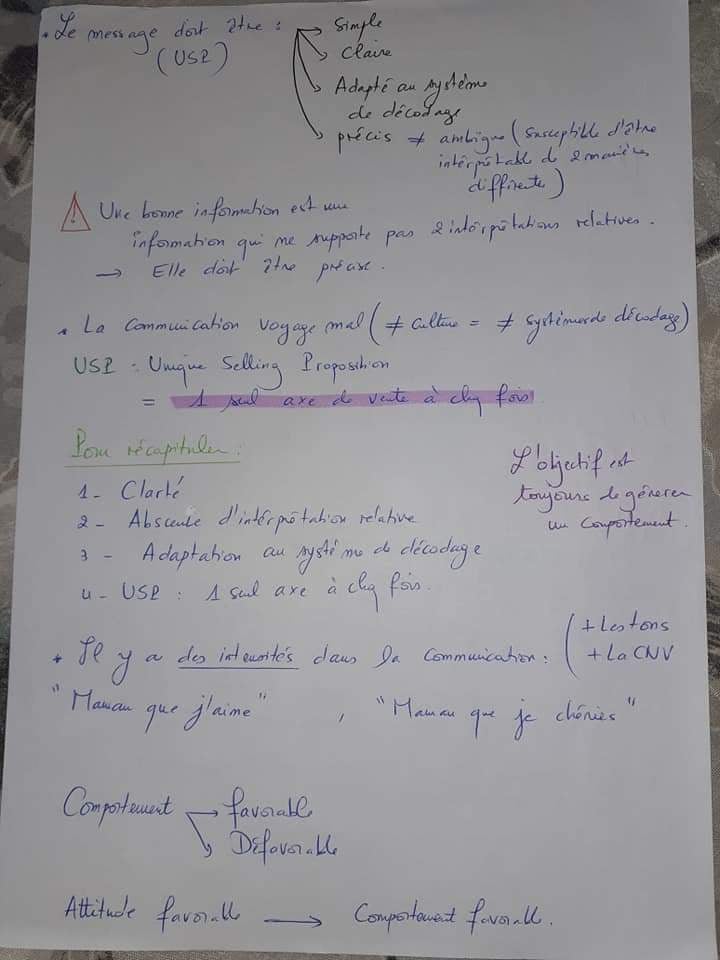 * Le message doit être : → Simple
(USP) → Claire
→ Adapté au système
de décodage
→ précis ≠ ambigue (susceptible d'être
intérprétable de 2 manières
différente)
⚠ Une bonne information est une
information qui ne supporte pas 2 intérprétations relatives.
→ Elle doit être précise.
* La communication voyage mal (≠ culture = ≠ systèmes de décodage)
USP : Unique Selling Proposition
= 1 seul axe de vente à chq fois.
Pour récapituler :
1 - Clarté
2 - Abscence d'intérprétation relative
3 - Adaptation au système de décodage
4 - USP : 1 seul axe à chq fois.
L'objectif est
toujours de génerer
un comportement.
* Il y a des intensités dans la communication : ( + Les tons
+ La CNV
"Maman que j'aime" , "Maman que je chéries"
Comportement → favorable
→ Défavorable
Attitude favorable → Comportement favorable.